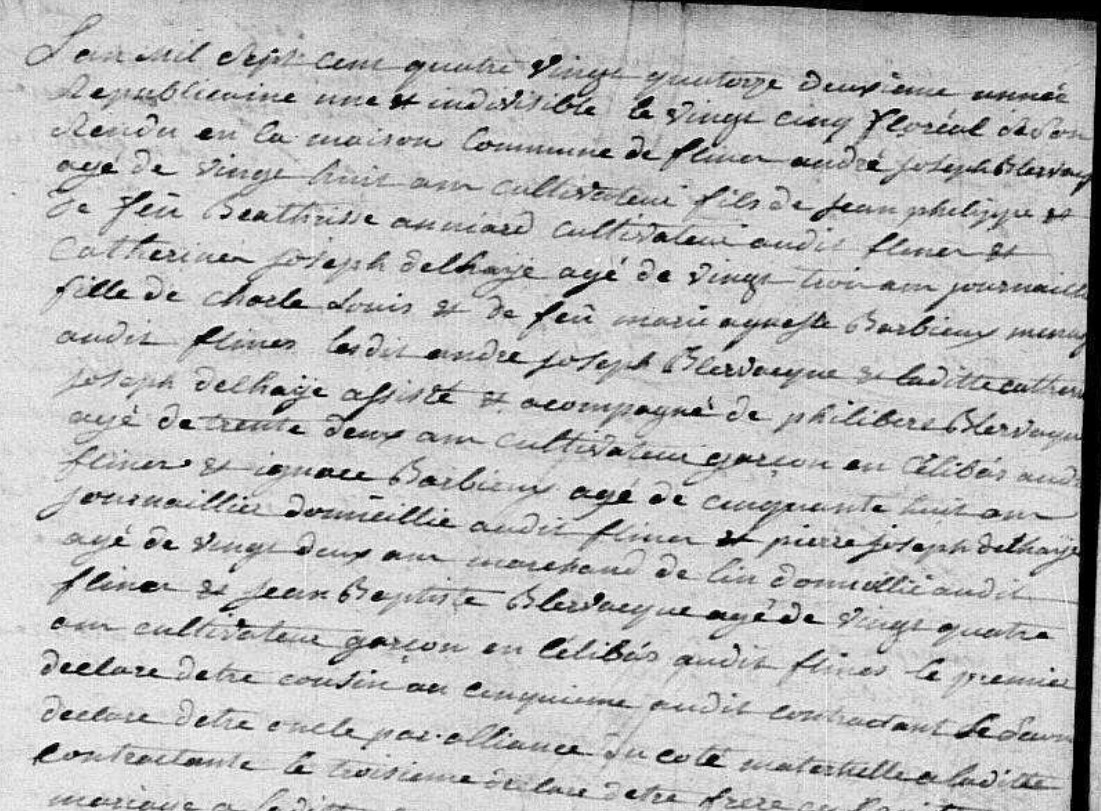 L'an mil sept cent quatre vingt quatorze deuxieme année
Republicaine une et indivisible le vingt cinq floréal
Rendu en la maison Commune de flines andré joseph Blervacq
agé de vingt huit ans cultivateur fils de jean philippe et
de feu Beathrisse anniard cultivateur audit flines et
Catherine joseph delhaÿe agé de vingt trois ans journaill
fille de charle Louis et de feu marie agnesse Barbieux menag
audit flines lesdit andre joseph Blervacque et laditte cather
joseph delhaÿe assisté et acompagné de philibert Blervaque
agé de trente deux ans cultivateur garçon en Célibás audi
flines et ignace Barbieux agé de cinquante huit ans
journaillier domicillié audit flines et pierre joseph delhaÿe
agé de vingt deux ans marchand de lin domicillié audit
flines et jean Baptiste Blervacque agé de vingt quatre
ans cultivateur garçon en Célibás audit flines le premier
declare detre cousin au cinquieme audit contractant le
declare detre oncle par alliance du coté maternelle a laditte
Contractante le troisieme declare detre frere
mariage a laditte